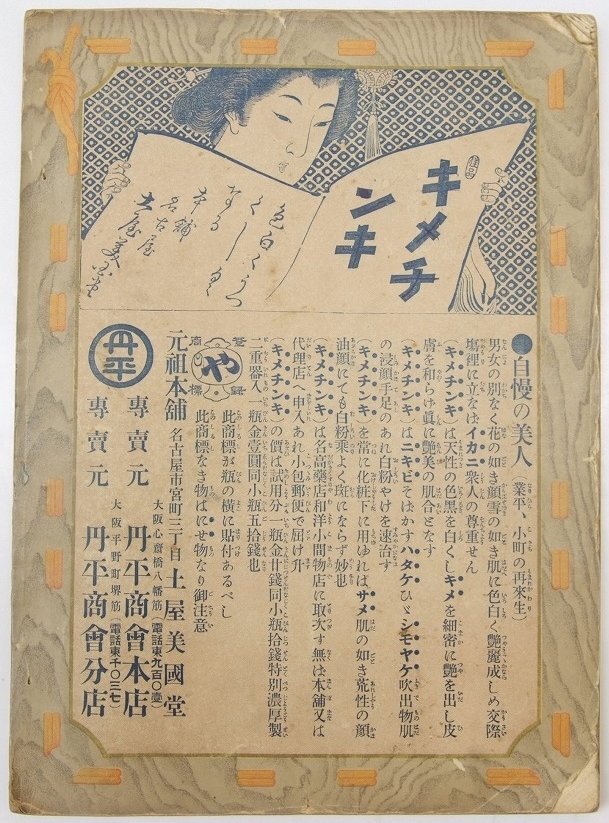 佳品
キメチ
ンキ
色白くうつ
くしく
なる
本舗
名古屋
土屋美国堂
●自慢の美人(業平、小町の再来生)
男女の別なく花の如き顔雪の如き肌に色白く艶麗成しめ交際
塲裡に立なばイカニ衆人の尊重せん
(キメチンキ)は天性の色黒を白くしキメを細密に艶を出し皮
膚を和らげ眞に艶美の肌合となす
(キメチンキ)はニキビそばかすハタケひゞシモヤケ吹出物肌
の浸顔手足のあれ白粉やけを速治す
(キメチンキ)を常に化粧下に用ゆればサメ肌の如き荒性の顔
油顔にても白粉乘よく斑にならず妙也
(キメチンキ)は名高藥店和洋小間物店に取次す無は本舗又は
代理店へ申入あれ小包郵便で屆け升
(キメチンキ)の價は試用分一瓶金廿錢同小瓶拾錢特別濃厚製
二重器入一瓶金壹圓同小瓶五拾錢也
登録
や
商標
此商標が瓶の横に貼付あるべし
此商標なき物ばにせ物なり御注意
元祖本舗 名古屋市宮町三丁目 土屋美國堂
丹平
專賣元 大阪心齋橋八幡筋(電話東九百〇壹) 丹平商會本店
專賣元 大阪平野町堺筋(電話東千〇三七) 丹平商會分店